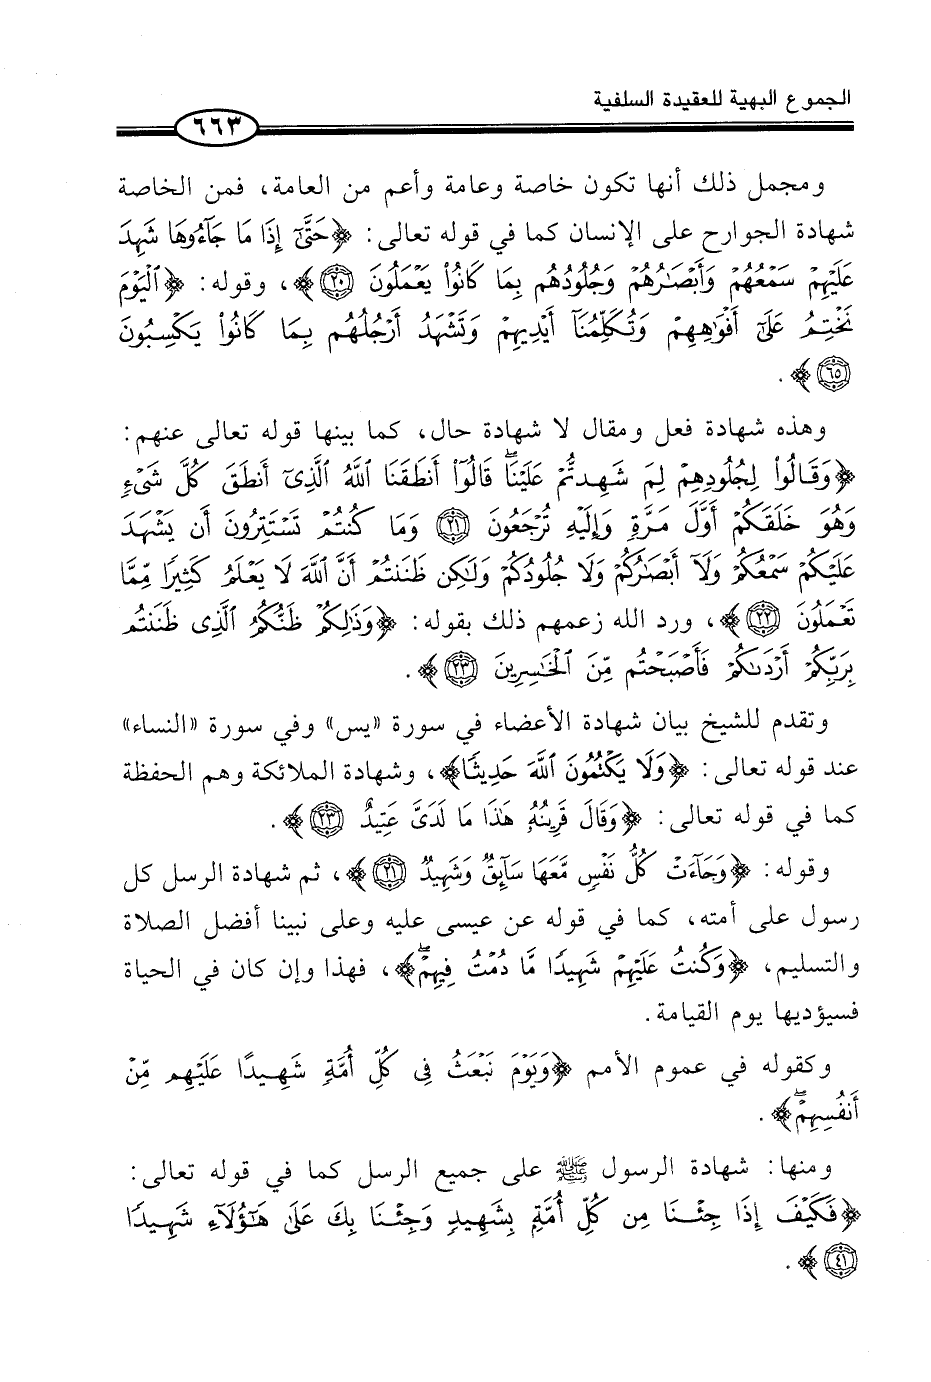 الجموع البهية للعقيدة السلفية
٦٦٣
ومجمل ذلك أنها تكون خاصة وعامة وأعم من العامة، فمن الخاصة
شهادة الجوارح على الإنسان كما في قوله تعالى: ﴿حَتَّىٰٓ إِذَا مَا جَآءُوهَا شَهِدَ
عَلَيْهِمْ سَمْعُهُمْ وَأَبْصَٰرُهُمْ وَجُلُودُهُم بِمَا كَانُوا۟ يَعْمَلُونَ ٢٠﴾، وقوله: ﴿ٱلْيَوْمَ
نَخْتِمُ عَلَىٰٓ أَفْوَٰهِهِمْ وَتُكَلِّمُنَآ أَيْدِيهِمْ وَتَشْهَدُ أَرْجُلُهُم بِمَا كَانُوا۟ يَكْسِبُونَ
٦٥﴾.
وهذه شهادة فعل ومقال لا شهادة حال، كما بينها قوله تعالى عنهم:
﴿وَقَالُوا۟ لِجُلُودِهِمْ لِمَ شَهِدتُّمْ عَلَيْنَا ۖ قَالُوٓا۟ أَنطَقَنَا ٱللَّهُ ٱلَّذِىٓ أَنطَقَ كُلَّ شَىْءٍ
وَهُوَ خَلَقَكُمْ أَوَّلَ مَرَّةٍ وَإِلَيْهِ تُرْجَعُونَ ٢١ وَمَا كُنتُمْ تَسْتَتِرُونَ أَن يَشْهَدَ
عَلَيْكُمْ سَمْعُكُمْ وَلَآ أَبْصَٰرُكُمْ وَلَا جُلُودُكُمْ وَلَٰكِن ظَنَنتُمْ أَنَّ ٱللَّهَ لَا يَعْلَمُ كَثِيرًا مِّمَّا
تَعْمَلُونَ ٢٢﴾، ورد الله زعمهم ذلك بقوله: ﴿وَذَٰلِكُمْ ظَنُّكُمُ ٱلَّذِى ظَنَنتُم
بِرَبِّكُمْ أَرْدَىٰكُمْ فَأَصْبَحْتُم مِّنَ ٱلْخَٰسِرِينَ ٢٣﴾.
وتقدم للشيخ بيان شهادة الأعضاء في سورة «يس» وفي سورة «النساء»
عند قوله تعالى: ﴿وَلَا يَكْتُمُونَ ٱللَّهَ حَدِيثًا﴾، وشهادة الملائكة وهم الحفظة
كما في قوله تعالى: ﴿وَقَالَ قَرِينُهُۥ هَٰذَا مَا لَدَىَّ عَتِيدٌ ٢٣﴾.
وقوله: ﴿وَجَآءَتْ كُلُّ نَفْسٍ مَّعَهَا سَآئِقٌ وَشَهِيدٌ ٢١﴾، ثم شهادة الرسل كل
رسول على أمته، كما في قوله عن عيسى عليه وعلى نبينا أفضل الصلاة
والتسليم، ﴿وَكُنتُ عَلَيْهِمْ شَهِيدًا مَّا دُمْتُ فِيهِمْ ۖ﴾، فهذا وإن كان في الحياة
فسيؤديها يوم القيامة.
وكقوله في عموم الأمم ﴿وَيَوْمَ نَبْعَثُ فِى كُلِّ أُمَّةٍ شَهِيدًا عَلَيْهِم مِّنْ
أَنفُسِهِمْ ۖ﴾.
ومنها: شهادة الرسول ﷺ على جميع الرسل كما في قوله تعالى:
﴿فَكَيْفَ إِذَا جِئْنَا مِن كُلِّ أُمَّةٍۭ بِشَهِيدٍ وَجِئْنَا بِكَ عَلَىٰ هَٰٓؤُلَآءِ شَهِيدًا
٤١﴾.